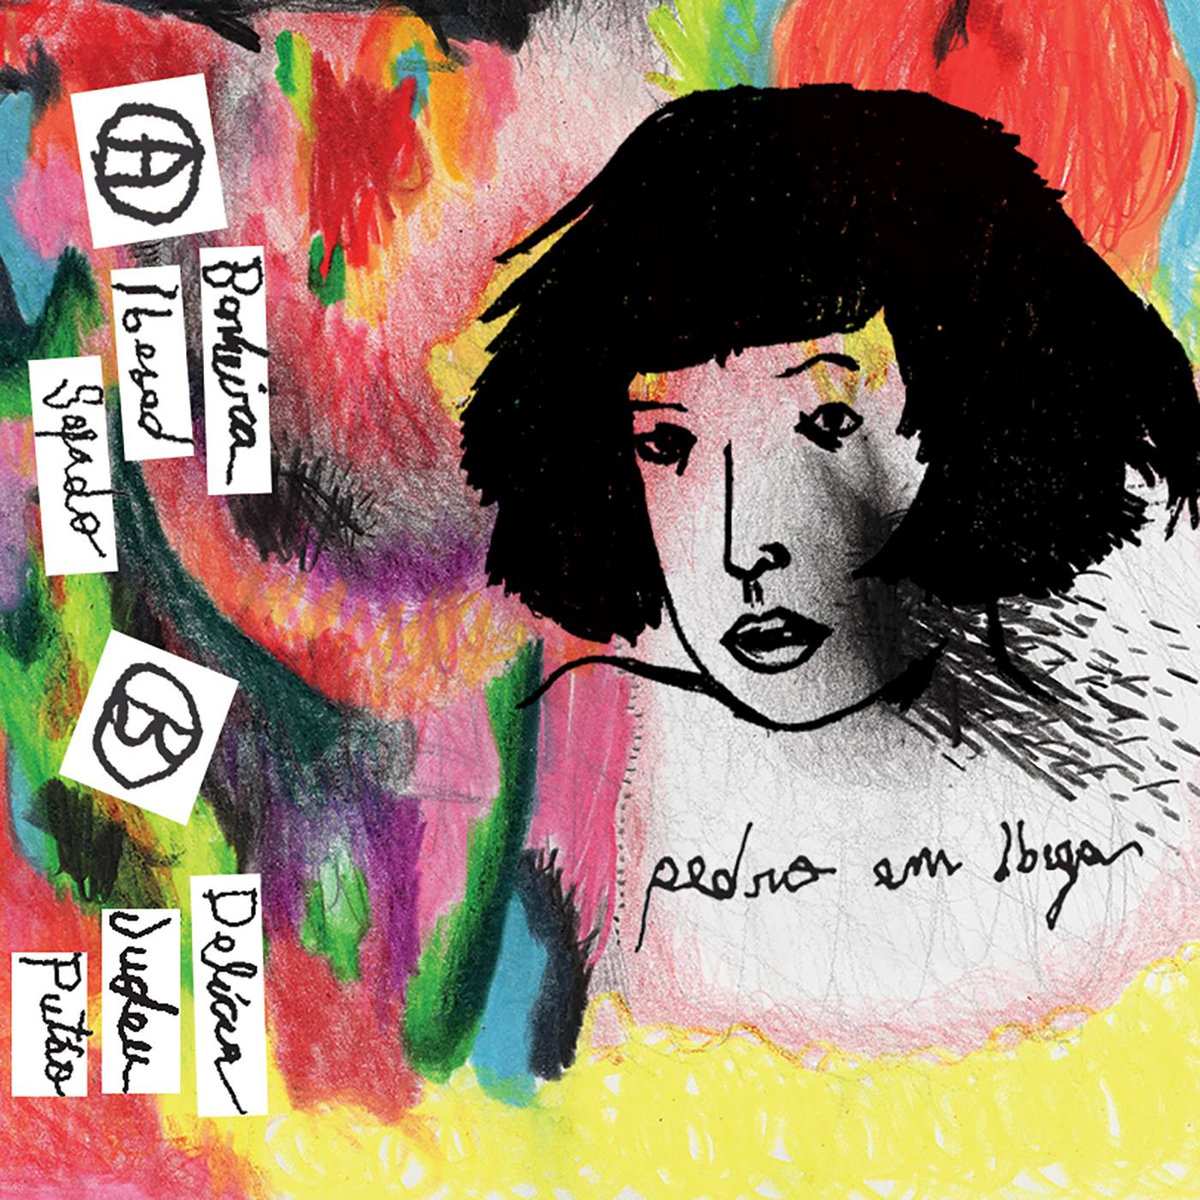 A
Banheira
Gofado
B
Delícia
Judeu
Putão
pedro em Ibiza